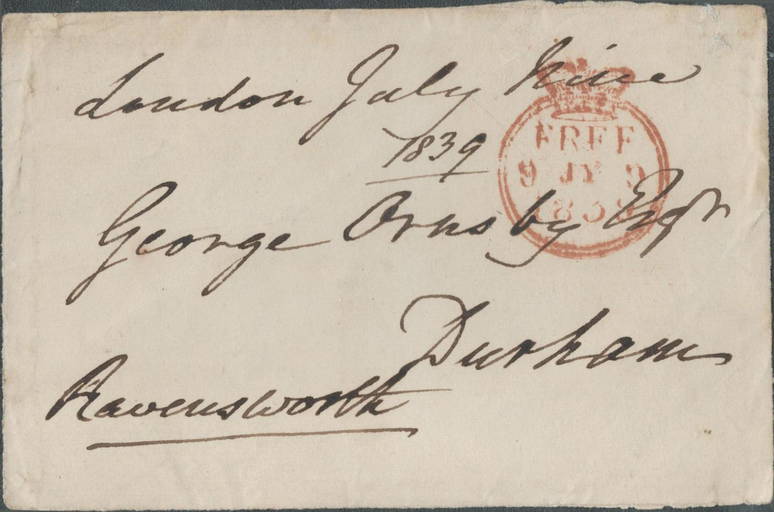 London July Nine
1839
George Ornsby Esqr
Durham
Ravensworth
FREE
9 JY 9
1839